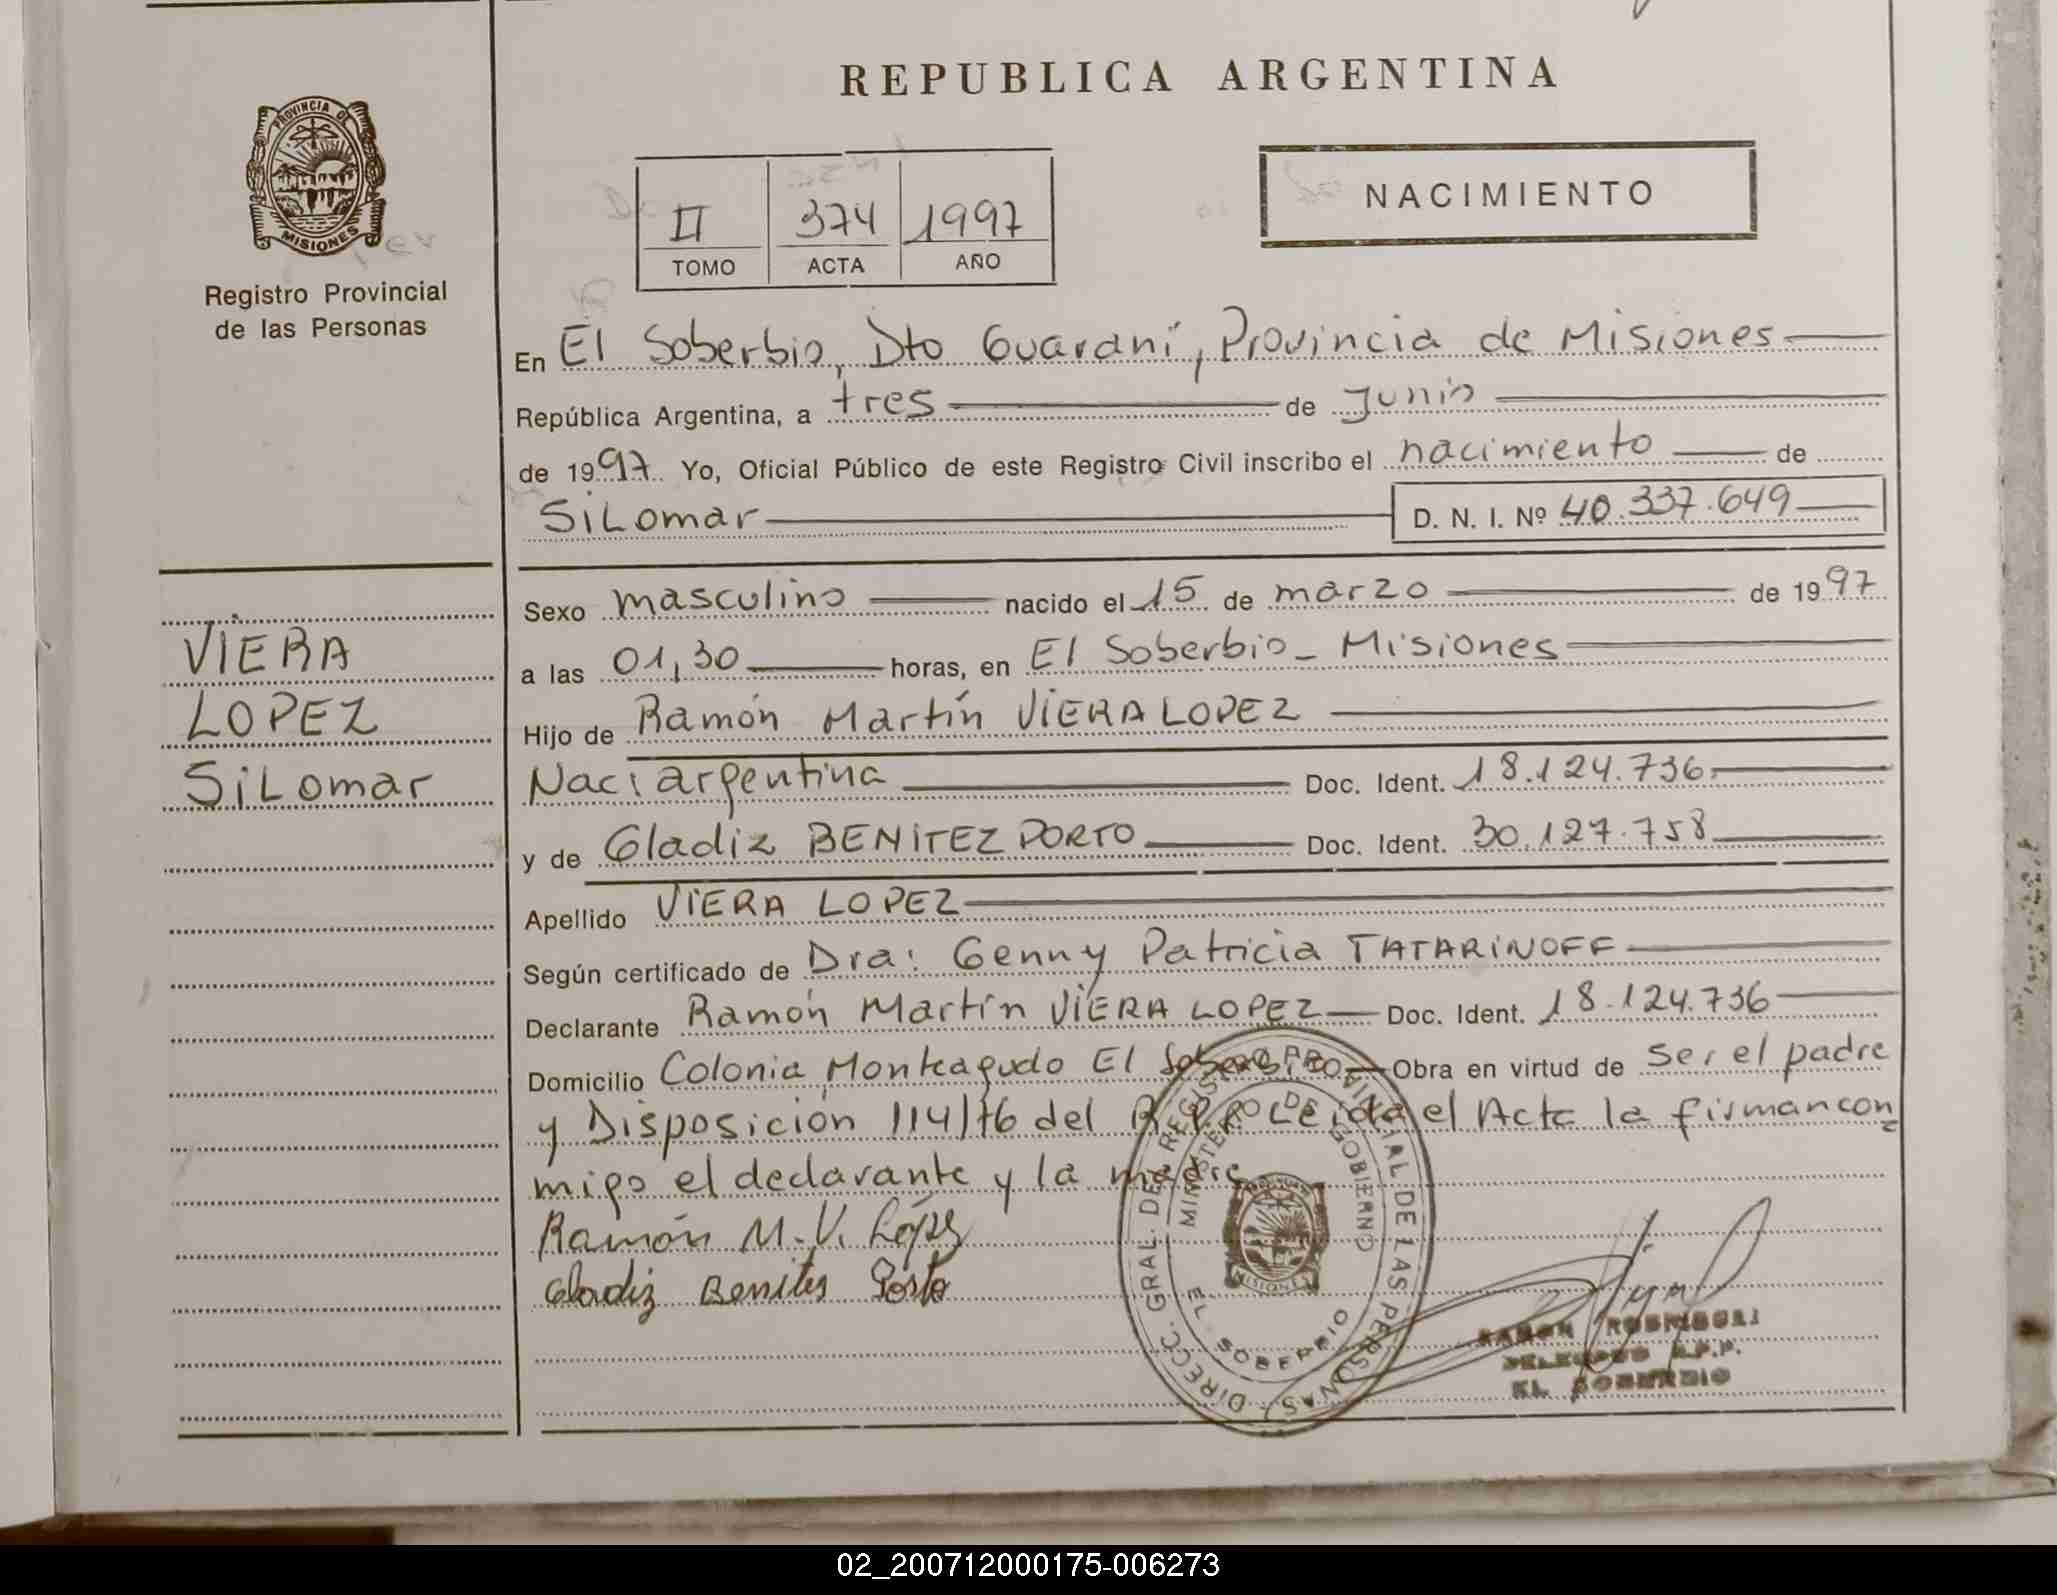 REPUBLICA ARGENTINA
PROVINCIA DE
MISIONES
Registro Provincial
de las Personas
II 374 1997
TOMO ACTA AÑO
NACIMIENTO
En El Soberbio, Dto Guaraní, Provincia de Misiones
República Argentina, a tres de Junio
de 1997 Yo, Oficial Público de este Registro Civil inscribo el nacimiento de
SiLomar D. N. I. Nº 40.337.649
VIERA
LOPEZ
SiLomar
Sexo masculino nacido el 15 de marzo de 1997
a las 01,30 horas, en El Soberbio - Misiones
Hijo de Ramón Martín VIERA LOPEZ
Naci argentina Doc. Ident. 18.124.736
y de Gladiz BENITEZ PORTO Doc. Ident. 30.127.758
Apellido VIERA LOPEZ
Según certificado de Dra: Genny Patricia TATARINOFF
Declarante Ramón Martín VIERA LOPEZ Doc. Ident. 18.124.736
Domicilio Colonia Monteagudo El Soberbio Obra en virtud de Ser el padre
y Disposición 114/76 del R.P.P. Leida el Acta la firman con
migo el declarante y la madre
Ramón M. V. López
Gladiz Benites Porto
DIRECC. GRAL. DEL REGISTRO PROVINCIAL DE LAS PERSONAS
MINISTERIO DE GOBIERNO
MISIONES
EL SOBERBIO
RAMON
DELEGADO R.P.P.
EL SOBERBIO
02_200712000175-006273